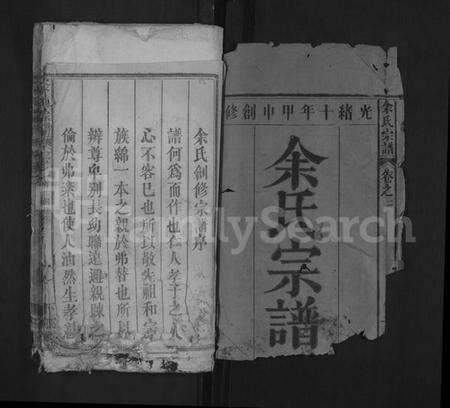 余氏宗譜 卷之
光緒十年甲申創修
余氏宗譜
余氏創修宗譜序
譜何為而作也仁人孝子之人
心不容已也所以敬先祖和宗
族綿一本之親於弗替也所以
辨尊卑別長幼聯遠邇親疎之
倫於弗紊也使人油然生孝
FamilySearch